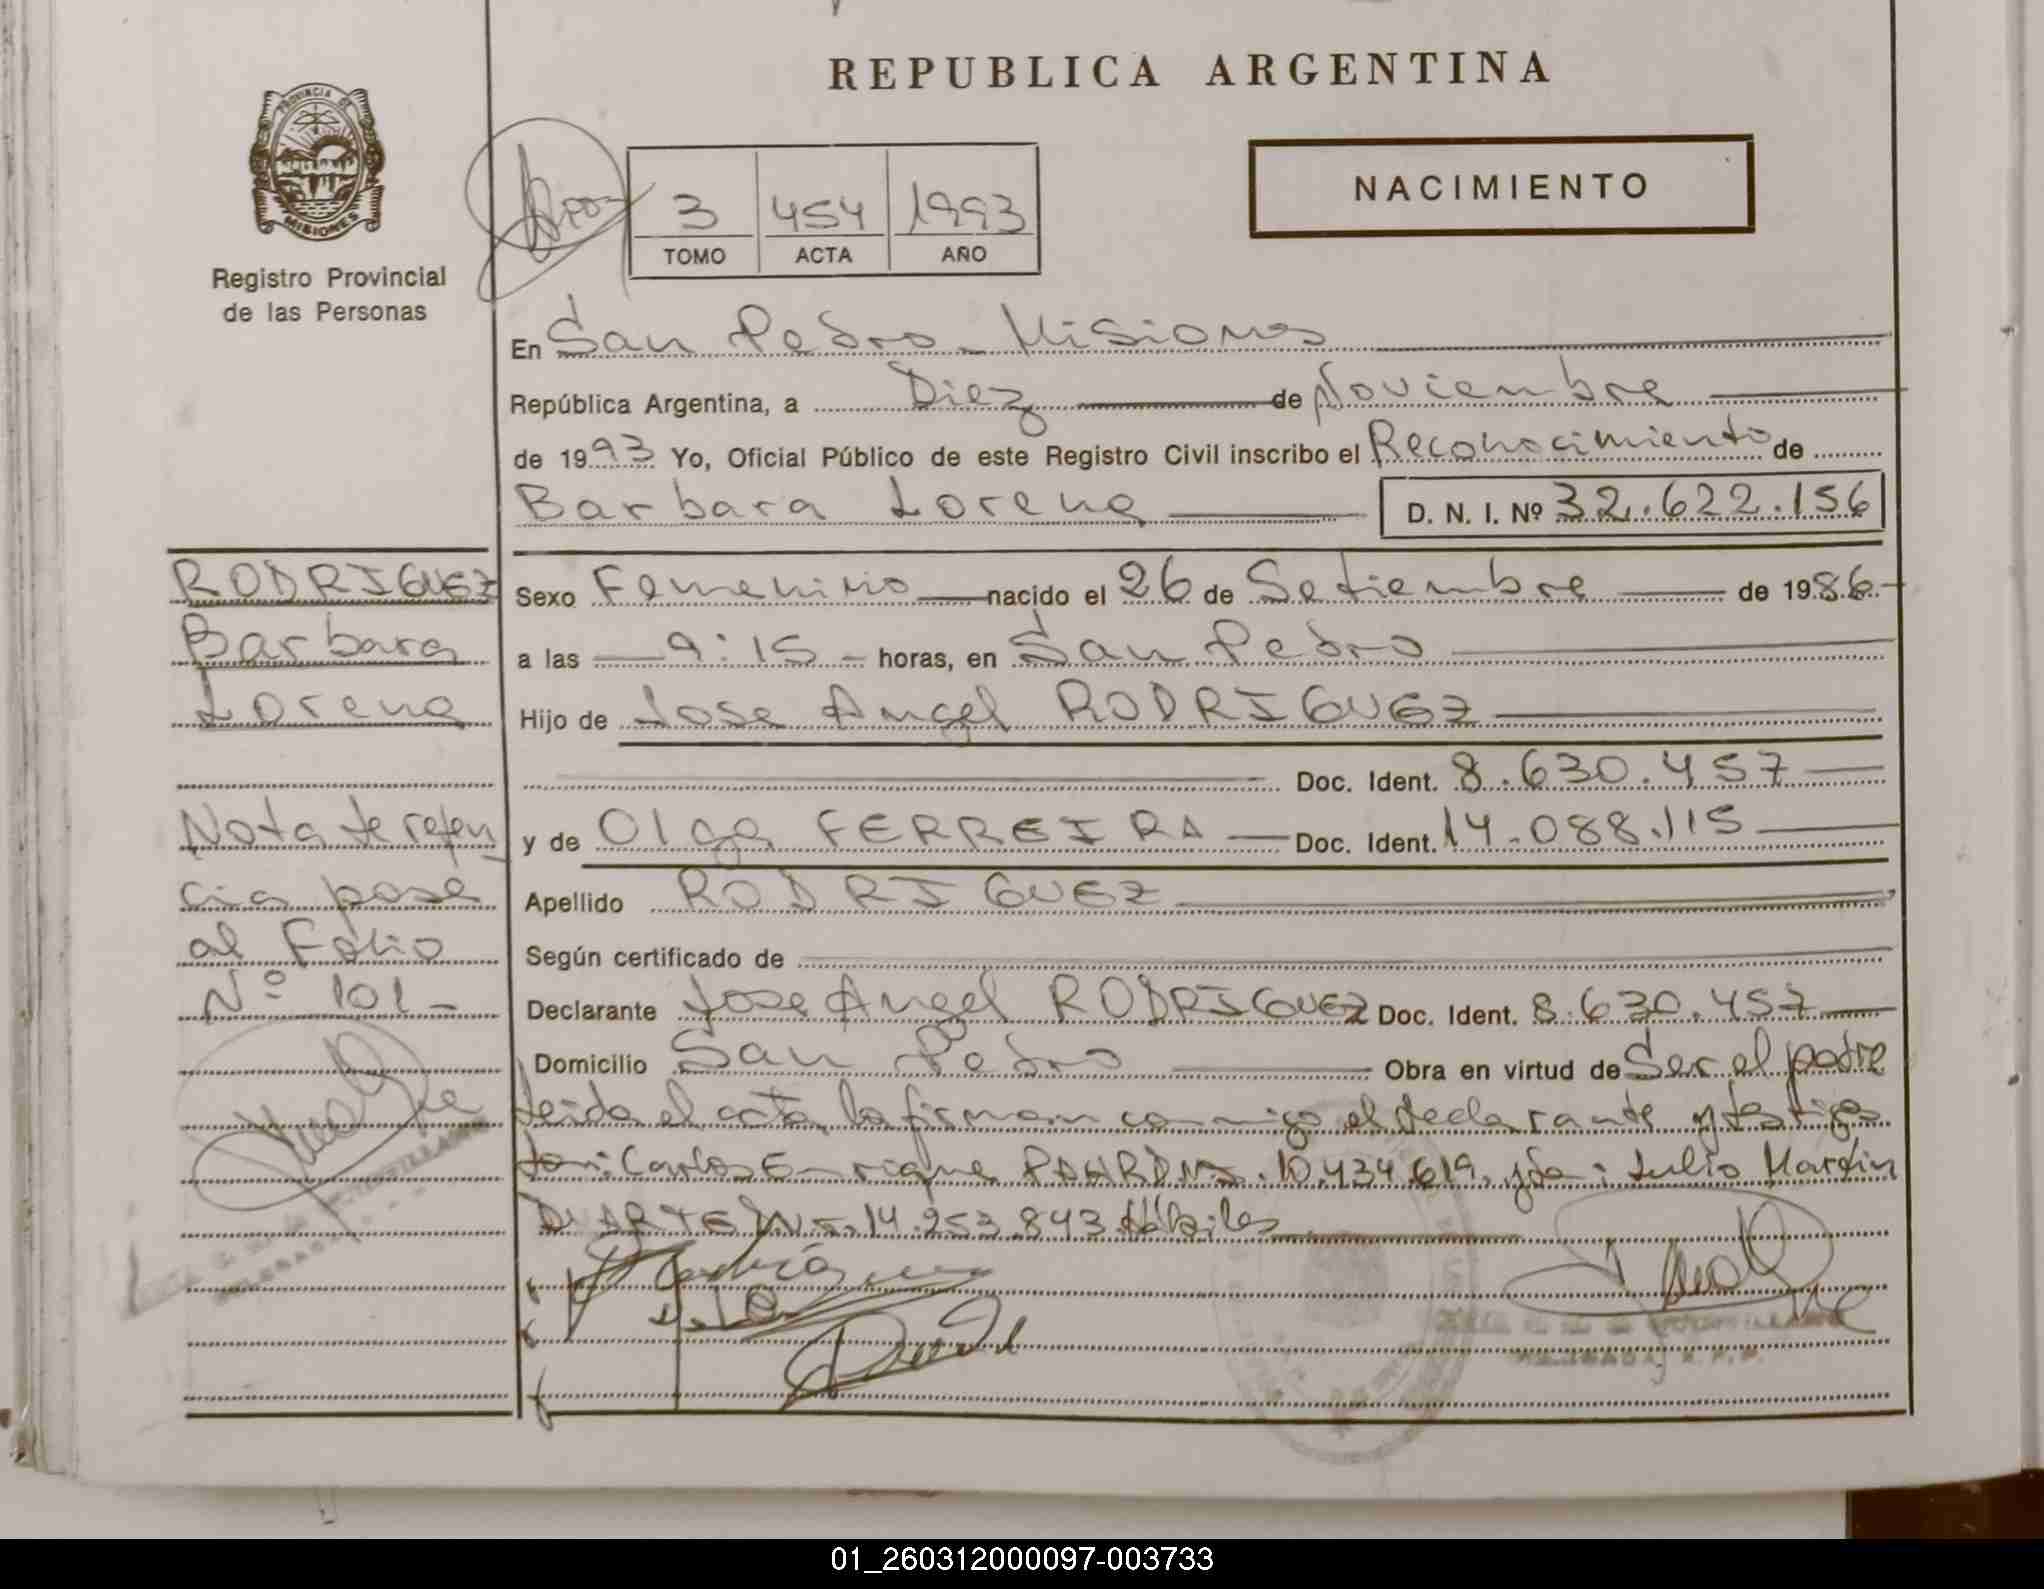 REPUBLICA ARGENTINA
PROVINCIA DE
MISIONES
Registro Provincial
de las Personas
3 454 1993
TOMO ACTA AÑO
NACIMIENTO
En San Pedro - Misiones
República Argentina, a Diez de Noviembre
de 1993 Yo, Oficial Público de este Registro Civil inscribo el Reconocimiento de
Barbara Lorena D. N. I. Nº 32.622.156
RODRIGUEZ
Barbara
Lorena
Nota de referen
cia pase
al Folio
Nº 101-
Sexo Femenino nacido el 26 de Setiembre de 1986-
a las 9:15 - horas, en San Pedro
Hijo de Jose Angel RODRIGUEZ
Doc. Ident. 8.630.457
y de Olga FERREIRA Doc. Ident. 14.088.115
Apellido RODRIGUEZ
Según certificado de
Declarante Jose Angel RODRIGUEZ Doc. Ident. 8.630.457
Domicilio San Pedro Obra en virtud de Ser el padre
Leida el acta, la firman conmigo el declarante y testigos
Carlos Enrique 10.434.619, Julio Martin
DUARTE 14.253.843 Hábiles
01_260312000097-003733